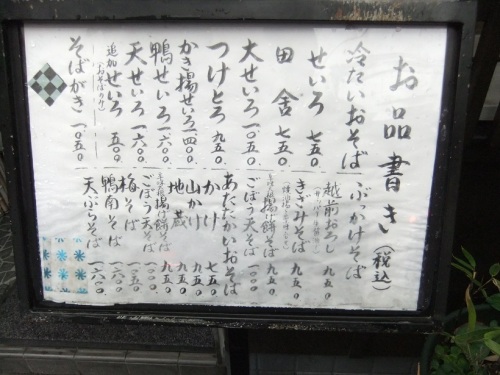 お品書き (税込)
冷たいおそば
せいろ 七五〇
田舎 七五〇
大せいろ 一〇五〇
つけとろ 九五〇
かき揚せいろ 一四〇〇
鴨せいろ 一六〇〇
天せいろ 一六〇〇
追加せいろ 五〇〇
そばがき 一〇五〇
ぶっかけそば
越前おろし 九五〇
きざみそば 九五〇
揚げ餅そば 九五〇
ごぼう天そば 一〇〇〇
あたたかいおそば
かけ 七五〇
山かけ 九五〇
地蔵 九五〇
揚げ餅そば 九五〇
ごぼう天そば 一〇〇〇
梅そば 一〇五〇
鴨南そば 一六〇〇
天ぷらそば 一六〇〇